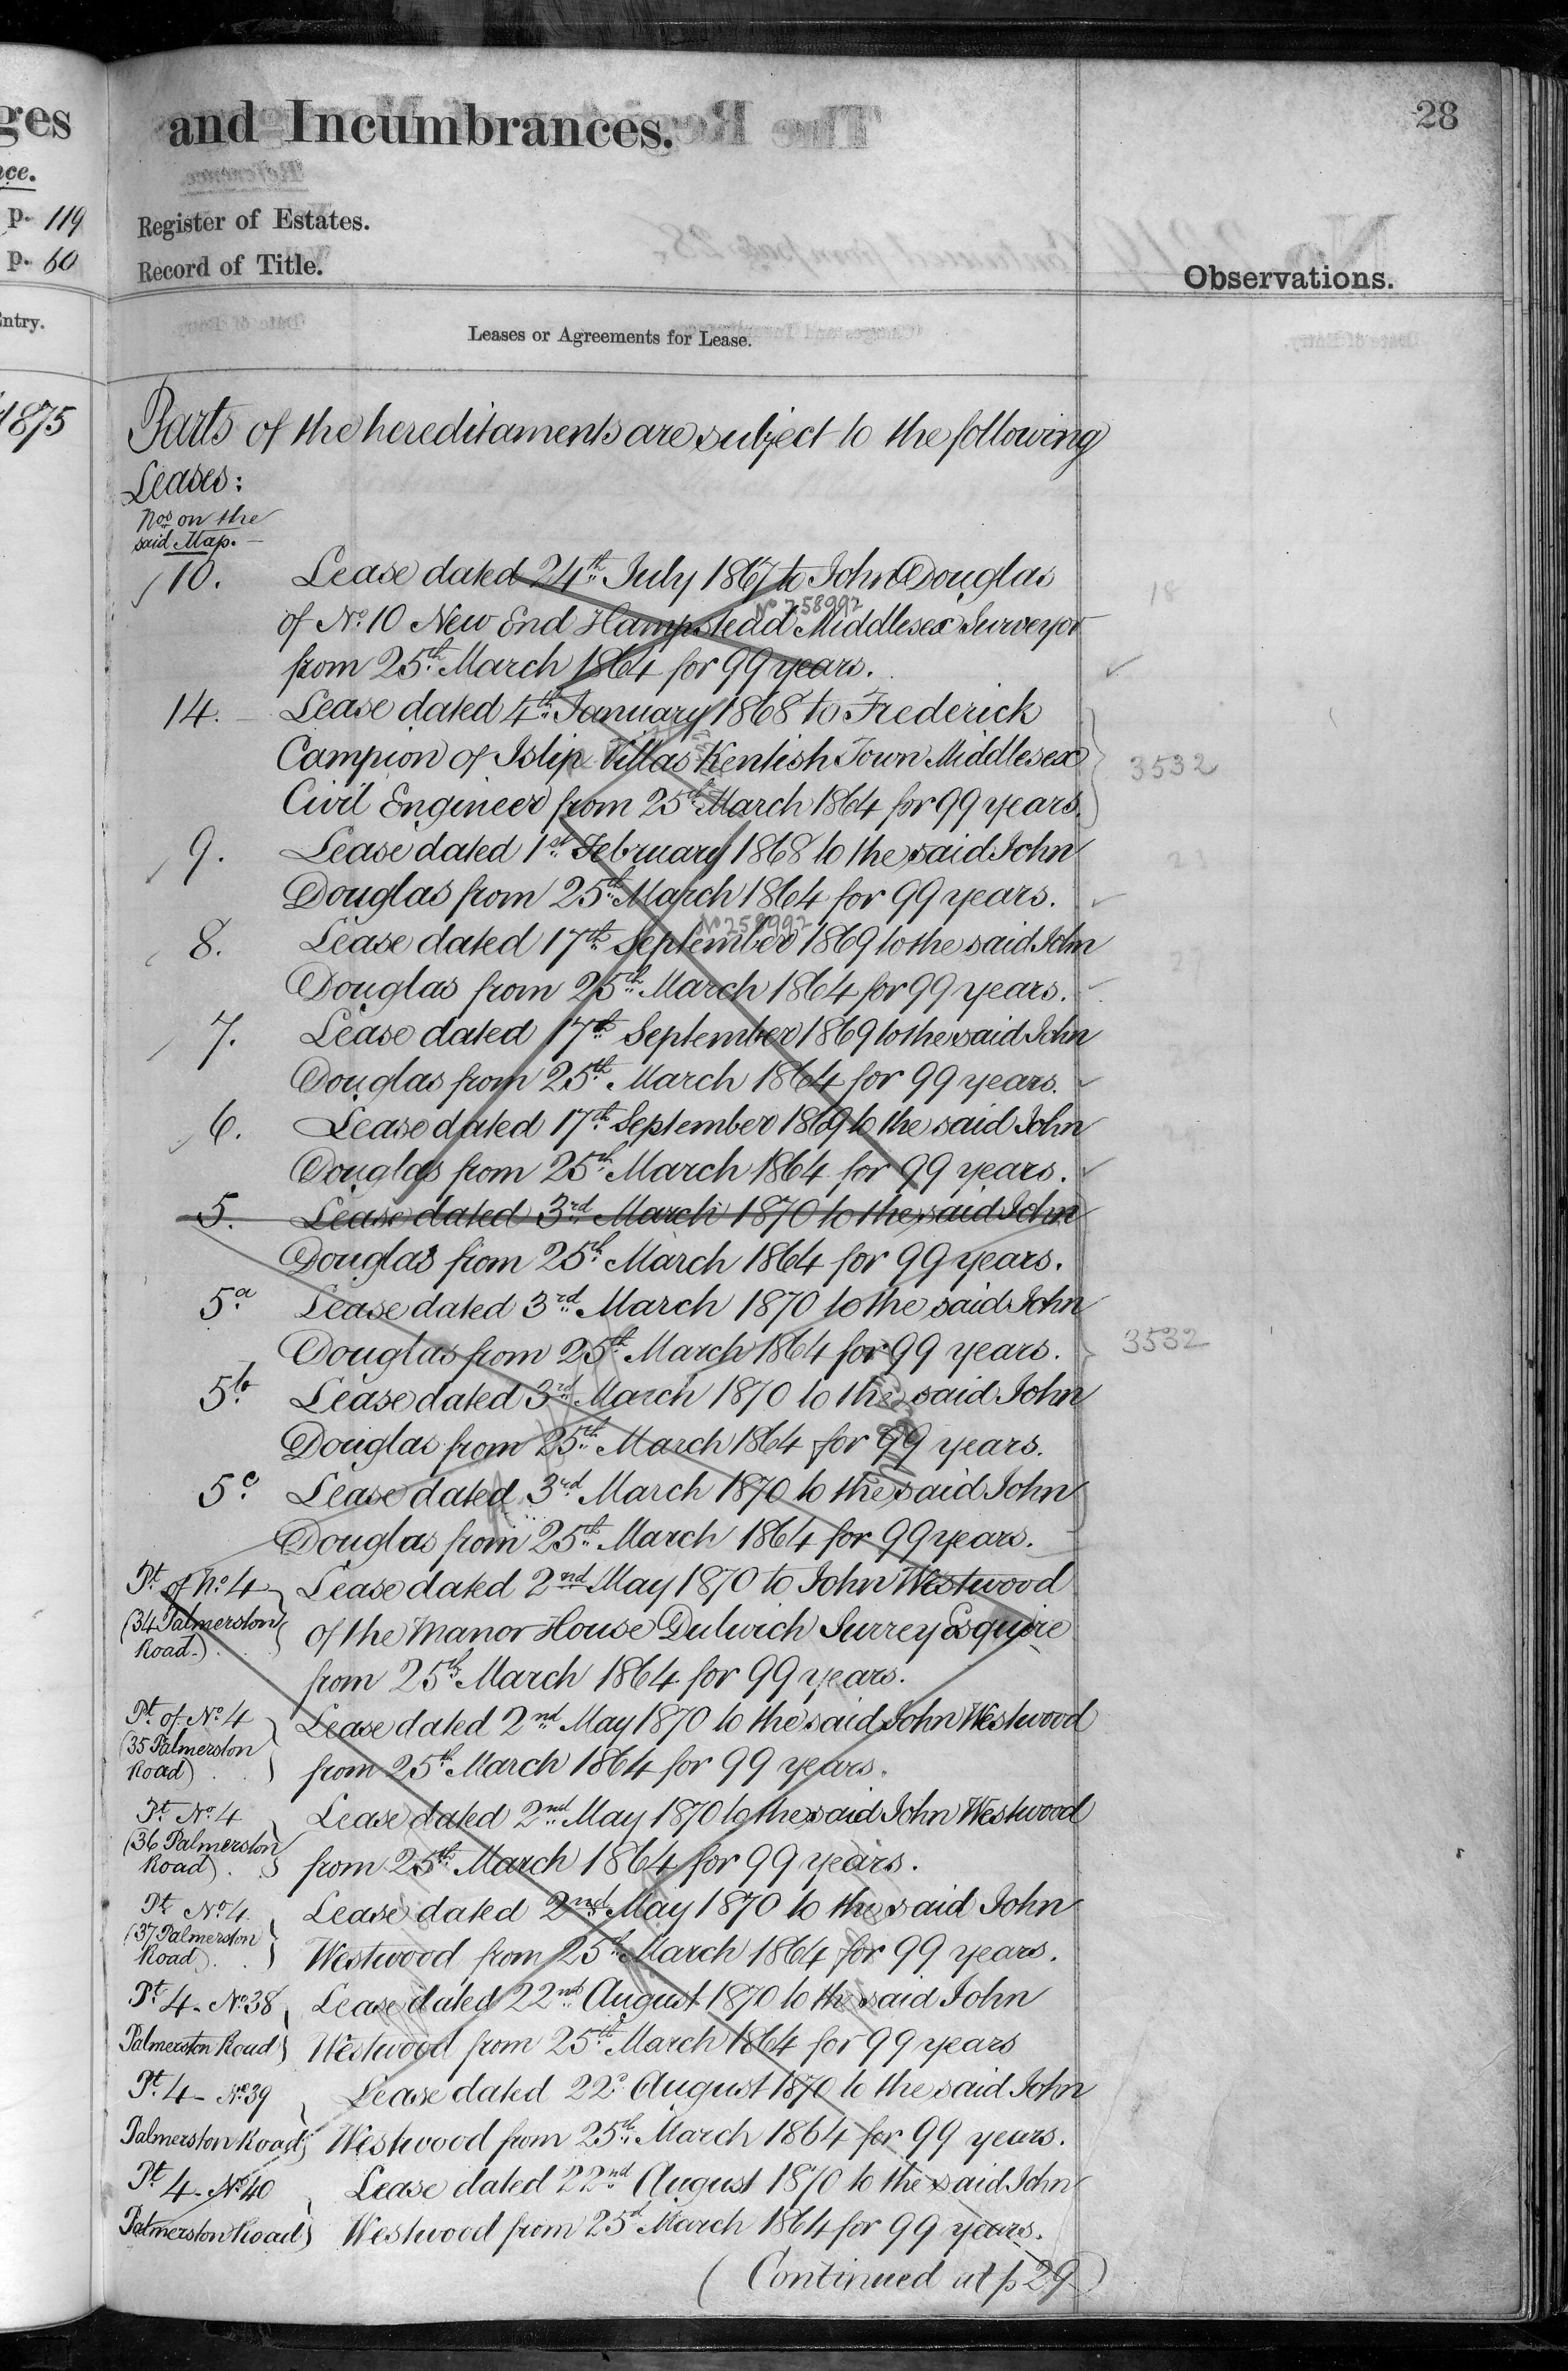 ges
nce.
p. 119
p. 60
Entry.
1875
28
and Incumbrances.
Register of Estates.
Record of Title.
Observations.
Leases or Agreements for Lease.
Parts of the hereditaments are subject to the following
Leases:
Nos on the
said Map. -
10. Lease dated 24th July 1867 to John Douglas
No 258992
of No. 10 New End Hampstead Middlesex Surveyor
from 25th March 1864 for 99 years.
14. - Lease dated 4th January 1868 to Frederick
Campion of Islip Villas Kentish Town Middlesex
3532
Civil Engineer from 25th March 1864 for 99 years.
9. Lease dated 1st February 1868 to the said John
Douglas from 25th March 1864 for 99 years.
No 258992
8. Lease dated 17th September 1869 to the said John
Douglas from 25th March 1864 for 99 years.
7. Lease dated 17th September 1869 to the said John
Douglas from 25th March 1864 for 99 years.
6. Lease dated 17th September 1869 to the said John
Douglas from 25th March 1864 for 99 years.
5. Lease dated 3rd March 1870 to the said John
Douglas from 25th March 1864 for 99 years.
5a Lease dated 3rd March 1870 to the said John
Douglas from 25th March 1864 for 99 years.
3532
5b Lease dated 3rd March 1870 to the said John
Douglas from 25th March 1864 for 99 years.
5c Lease dated 3rd March 1870 to the said John
Douglas from 25th March 1864 for 99 years.
Pt of No. 4 Lease dated 2nd May 1870 to John Westwood
(34 Palmerston of the Manor House Dulwich Surrey Esquire
Road.)
from 25th March 1864 for 99 years.
Pt of No. 4 Lease dated 2nd May 1870 to the said John Westwood
(35 Palmerston
Road) from 25th March 1864 for 99 years.
Pt No. 4 Lease dated 2nd May 1870 to the said John Westwood
(36 Palmerston
Road) from 25th March 1864 for 99 years.
Pt No. 4 Lease dated 2nd May 1870 to the said John
(37 Palmerston
Road) Westwood from 25th March 1864 for 99 years.
Pt 4 - No. 38 Lease dated 22nd August 1870 to the said John
Palmerston Road Westwood from 25th March 1864 for 99 years
Pt. 4 - No. 39 Lease dated 22d August 1870 to the said John
Palmerston Road Westwood from 25th March 1864 for 99 years.
Pt 4 - No. 40 Lease dated 22nd August 1870 to the said John
Palmerston Road Westwood from 25th March 1864 for 99 years.
(Continued at p 29)